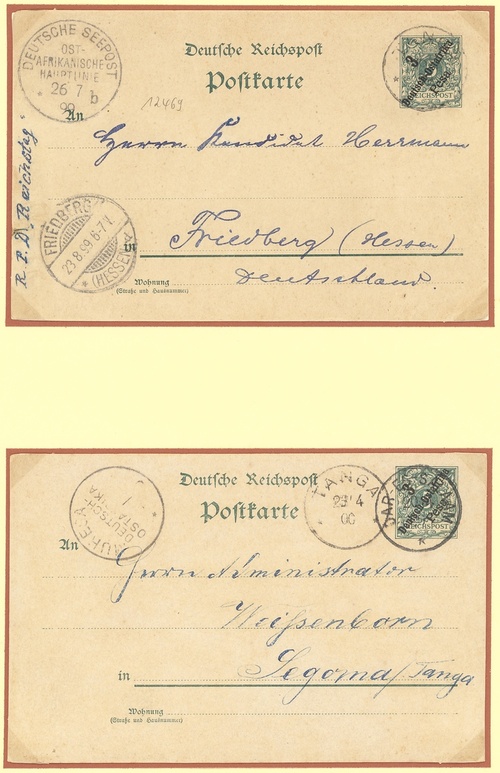 DEUTSCHE SEEPOST
OST-
AFRIKANISCHE
HAUPTLINIE
26 7
99 b
Deutsche Reichspost
Postkarte
3
Deutsch-Ostafrika
Pesa
REICHSPOST
12469
An
Herrn Kandidat Herrmann
R.P.D. „Reichstag“
FRIEDBERG
23.8.99.6-7
* (HESSEN)
in
Friedberg (Hessen)
Deutschland.
Wohnung
(Straße und Hausnummer)
Deutsche Reichspost
Postkarte
TANGA
29 4
00
DAR-ES-SALAAM
3
Pesa
REICHSPOST
DEUTSCH-
OSTAFRIKA
An
Herrn Administrator
Weissenborn
in
Segoma/Tanga
Wohnung
(Straße und Hausnummer)